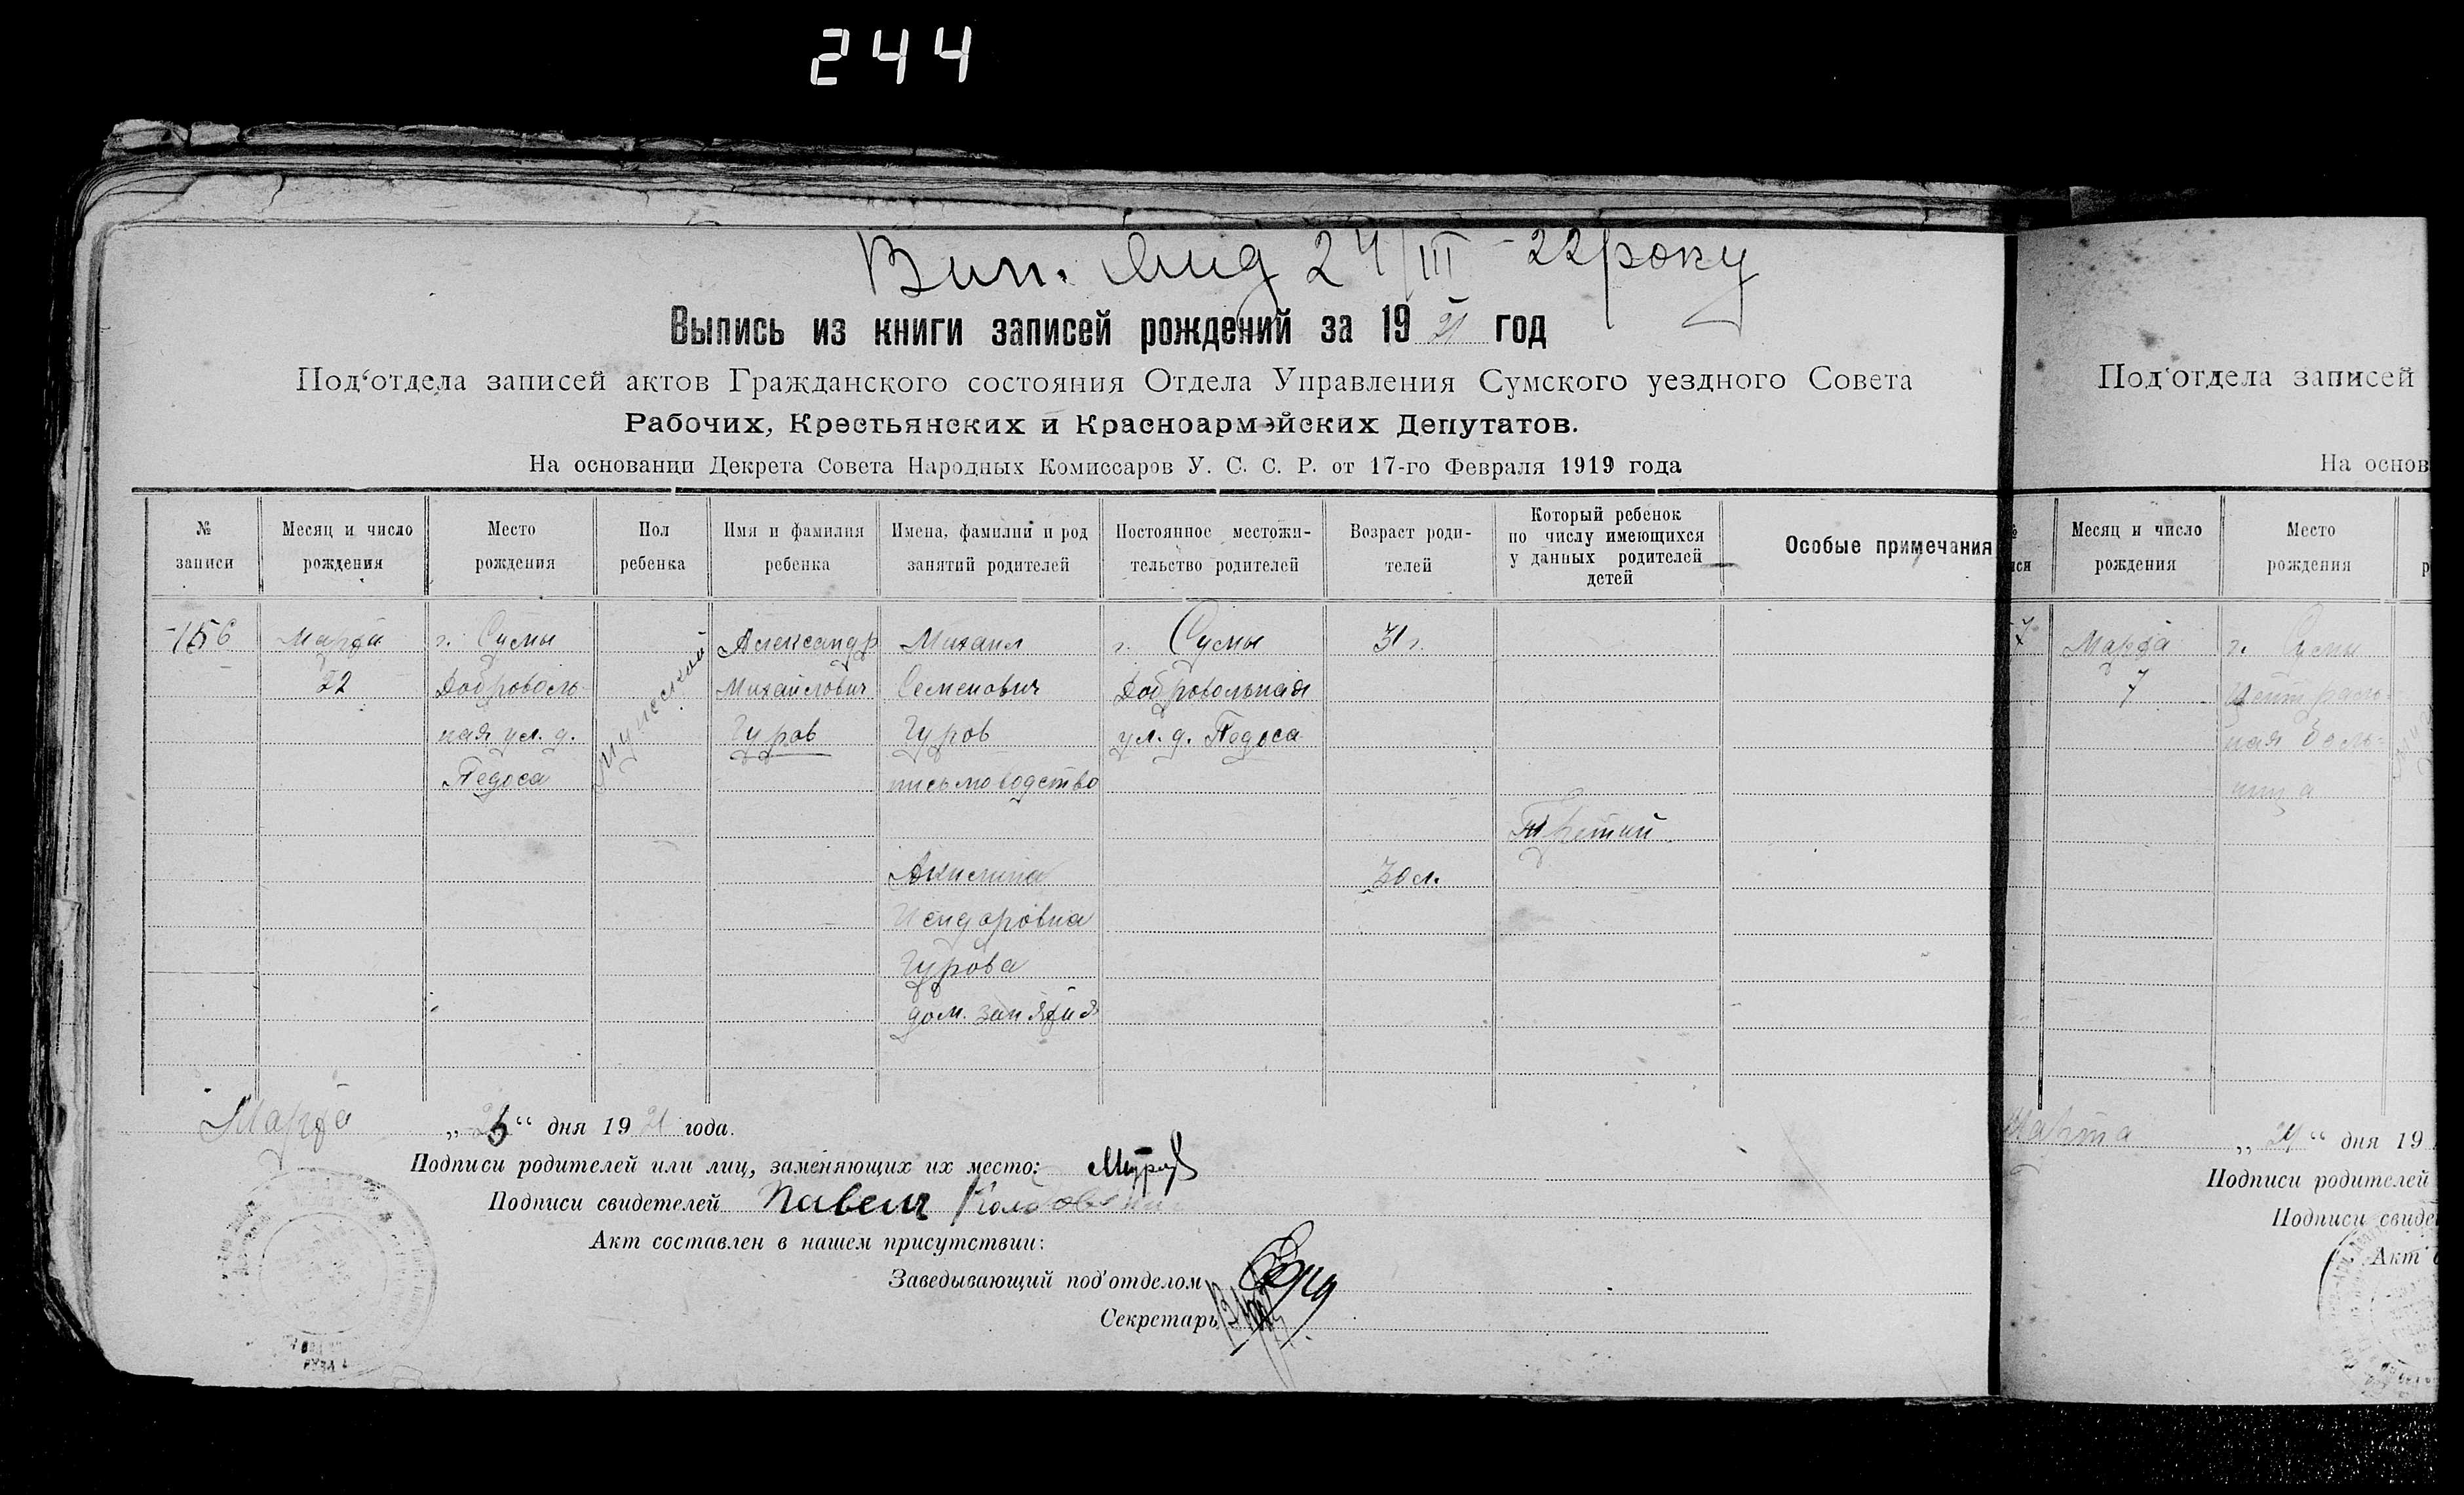 244
Вип. вид 24/III-22 року
Выпись из книги записей рождений за 1921 год
Под‘отдела записей актов Гражданского состояния Отдела Управления Сумского уездного Совета
Рабочих, Крестьянских и Красноармейских Депутатов.
На основании Декрета Совета Народных Комиссаров У. С. С. Р. от 17-го Февраля 1919 года
№ записи
Месяц и число рождения
Место рождения
Пол ребенка
Имя и фамилия ребенка
Имена, фамилии и род занятий родителей
Постоянное местожительство родителей
Возраст родителей
Который ребенок по числу имеющихся у данных родителей детей
Особые примечания
156
Марта
22
г. Сумы
Доброволь-
ная ул. д.
Педоса
мужеский
Александр
Михайлович
Гуров
Михаил
Семенович
Гуров
письмоводство
Акилина
Исидоровна
Гурова
дом. занятия
г. Сумы
Добровольная
ул. д. Педоса
31 г.
30 л.
Третий
Марта „ “ дня 1921 года.
Подписи родителей или лиц, заменяющих их место:
Подписи свидетелей Павел
Акт составлен в нашем присутствии:
Заведывающий под‘отделом
Секретарь
Под‘отдела записей
На основ
Месяц и число рождения
Место рождения
Марта
7
г. Сумы
Централь-
ная боль-
ница
Марта „24“ дня 19
Подписи родителей
Подписи свиде
Акт